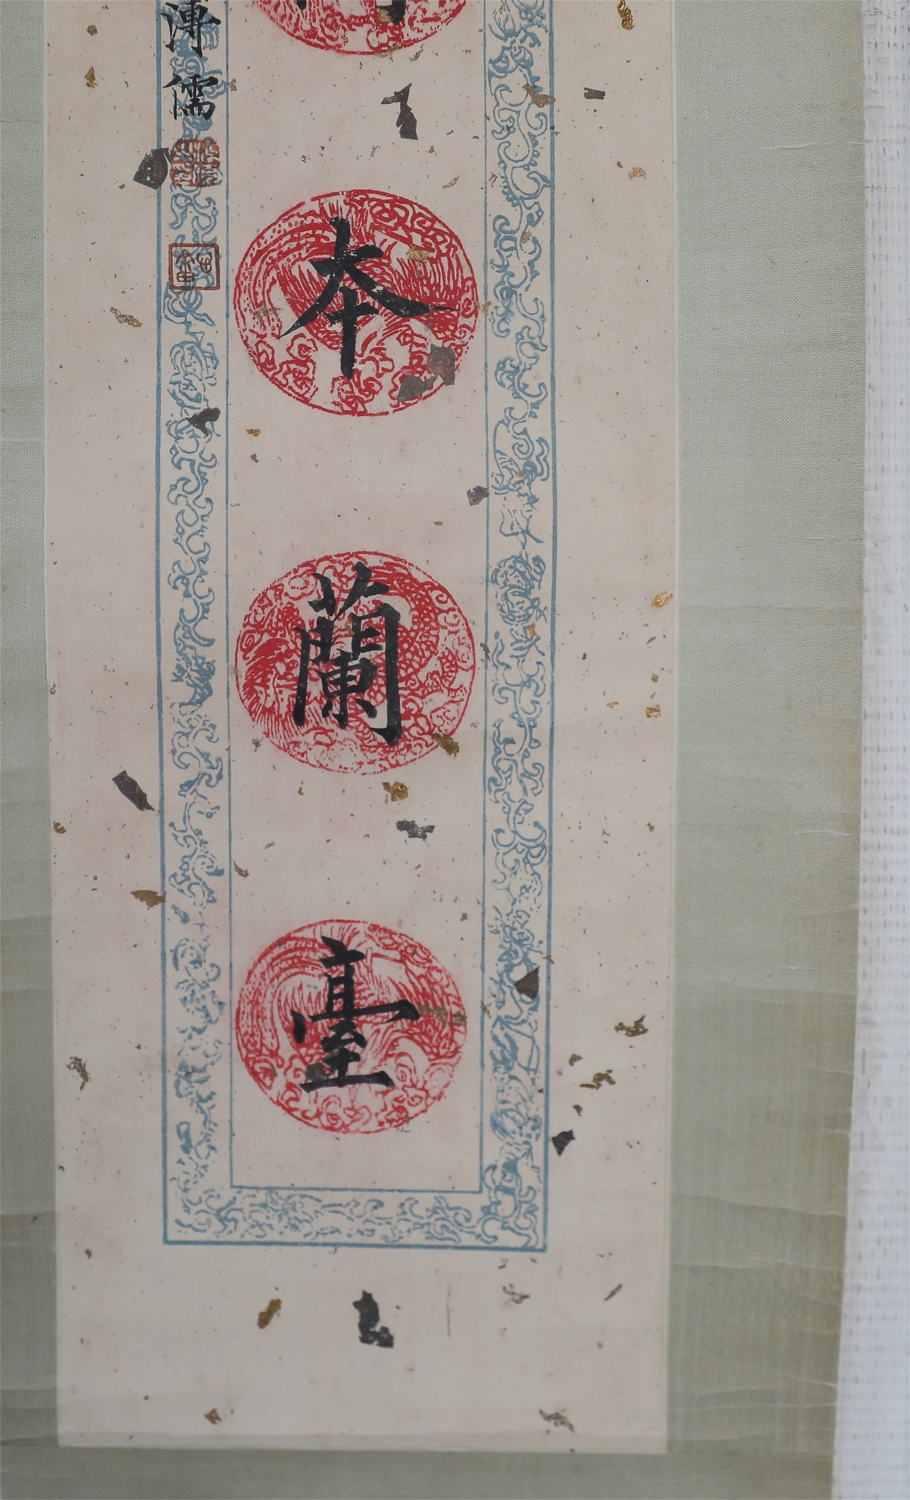 本蘭臺
溥儒